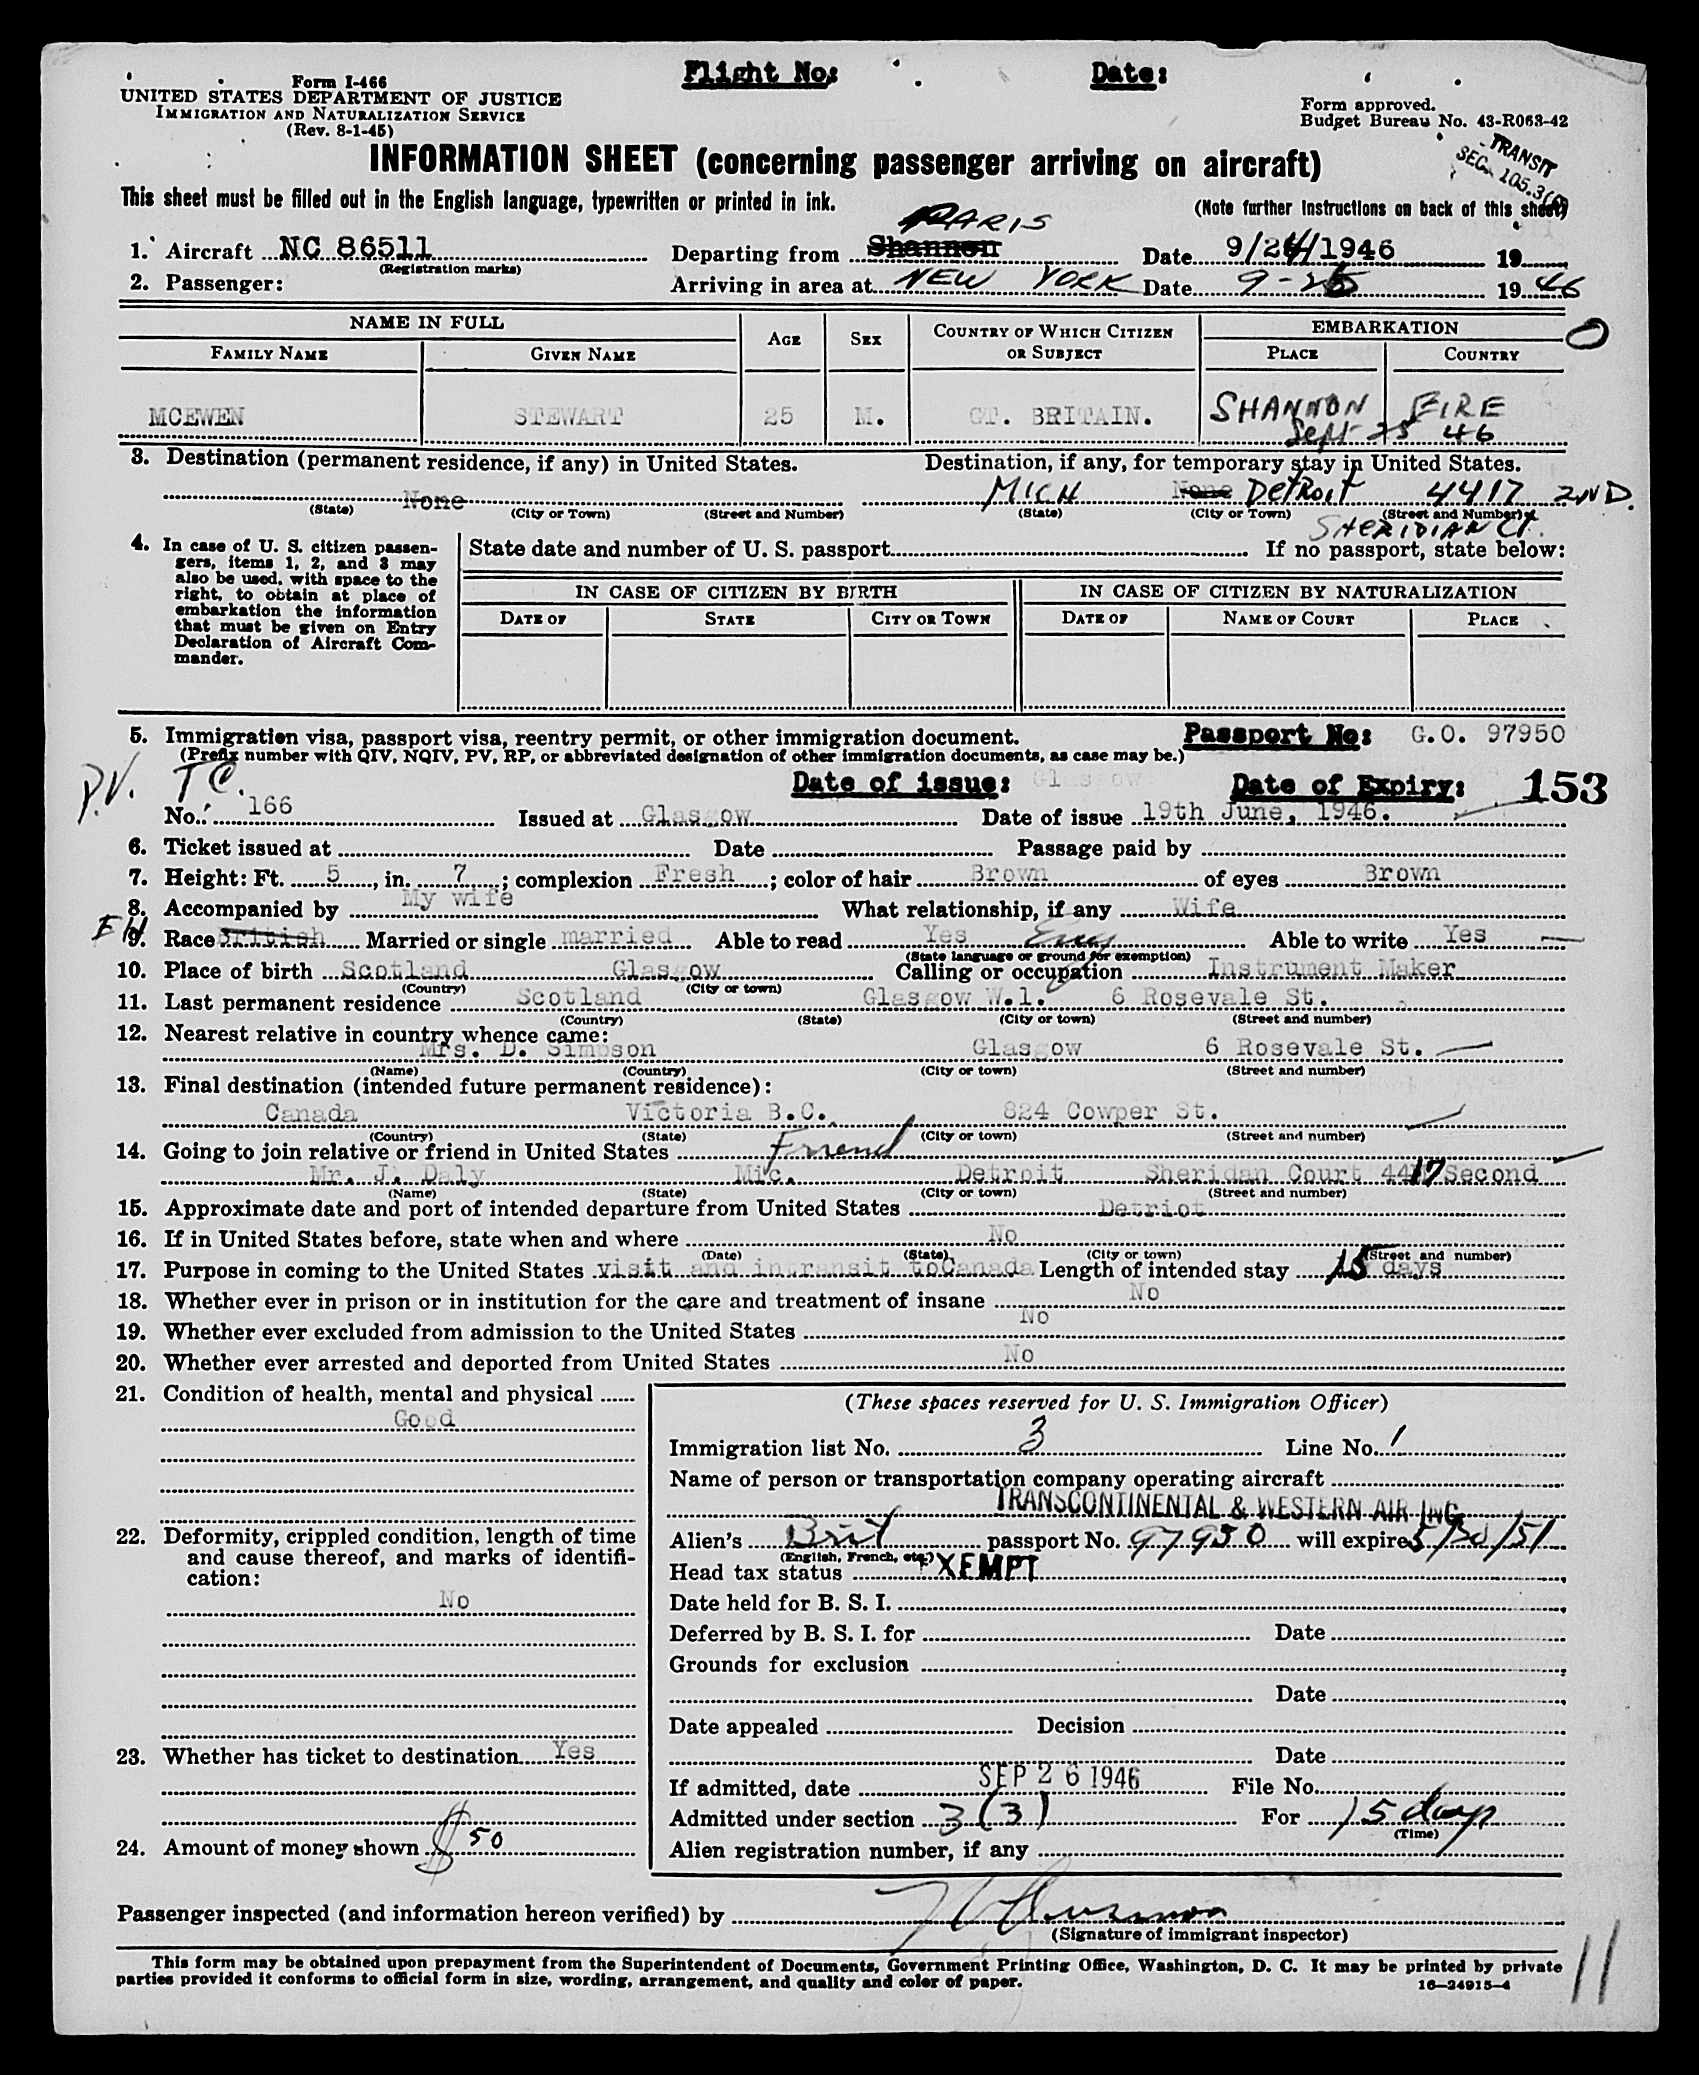 Flight No: Date:
Form I-466
UNITED STATES DEPARTMENT OF JUSTICE
IMMIGRATION AND NATURALIZATION SERVICE
(Rev. 8-1-45)
Form approved.
Budget Bureau No. 43-R063-42
TRANSIT
SEC. 105.3(
INFORMATION SHEET (concerning passenger arriving on aircraft)
This sheet must be filled out in the English language, typewritten or printed in ink.
(Note further instructions on back of this sheet)
PARIS
1. Aircraft NC 86511 Departing from Shannon Date 9/24/1946 19
(Registration marks)
2. Passenger: Arriving in area at NEW YORK Date 9-25 19 46
NAME IN FULL AGE SEX COUNTRY OF WHICH CITIZEN OR SUBJECT EMBARKATION
FAMILY NAME GIVEN NAME PLACE COUNTRY
O
MCEWEN STEWART 25 M. GT. BRITAIN. SHANNON EIRE
Sept 25 46
3. Destination (permanent residence, if any) in United States. Destination, if any, for temporary stay in United States.
None MICH None Detroit 4417 2ND.
(State) (City or Town) (Street and Number) (State) (City or Town) (Street and Number)
SHERIDIAN CT.
4. In case of U. S. citizen passengers, items 1, 2, and 3 may also be used, with space to the right, to obtain at place of embarkation the information that must be given on Entry Declaration of Aircraft Commander.
State date and number of U. S. passport If no passport, state below:
IN CASE OF CITIZEN BY BIRTH IN CASE OF CITIZEN BY NATURALIZATION
DATE OF STATE CITY OR TOWN DATE OF NAME OF COURT PLACE
5. Immigration visa, passport visa, reentry permit, or other immigration document. Passport No: G.O. 97950
(Prefix number with QIV, NQIV, PV, RP, or abbreviated designation of other immigration documents, as case may be.)
P.V. T.C. Date of issue: Glasgow Date of Expiry: 153
No. 166 Issued at Glasgow Date of issue 19th June, 1946.
6. Ticket issued at Date Passage paid by
7. Height: Ft. 5, in. 7; complexion Fresh; color of hair Brown of eyes Brown
8. Accompanied by My wife What relationship, if any Wife
9. Race British Married or single married Able to read Yes Eng Able to write Yes
(State language or ground for exemption)
10. Place of birth Scotland Glasgow Calling or occupation Instrument Maker
(Country) (City or town)
11. Last permanent residence Scotland Glasgow W.1. 6 Rosevale St.
(Country) (State) (City or town) (Street and number)
12. Nearest relative in country whence came:
Mrs. D. Simpson Glasgow 6 Rosevale St.
(Name) (Country) (City or town) (Street and number)
13. Final destination (intended future permanent residence):
Canada Victoria B.C. 824 Cowper St.
(Country) (State) (City or town) (Street and number)
14. Going to join relative or friend in United States Friend
Mr. J. Daly Mic. Detroit Sheridan Court 4417 Second
(Name) (State) (City or town) (Street and number)
15. Approximate date and port of intended departure from United States Detriot
16. If in United States before, state when and where No
(Date) (State) (City or town) (Street and number)
17. Purpose in coming to the United States visit and intransit toCanada Length of intended stay 15 days
18. Whether ever in prison or in institution for the care and treatment of insane No
19. Whether ever excluded from admission to the United States No
20. Whether ever arrested and deported from United States No
21. Condition of health, mental and physical
Good
22. Deformity, crippled condition, length of time and cause thereof, and marks of identification:
No
23. Whether has ticket to destination Yes
24. Amount of money shown $50
(These spaces reserved for U. S. Immigration Officer)
Immigration list No. 3 Line No. 1
Name of person or transportation company operating aircraft
TRANSCONTINENTAL & WESTERN AIR INC
Alien's Brit passport No. 97950 will expire 5/30/51
(English, French, etc.)
Head tax status EXEMPT
Date held for B. S. I.
Deferred by B. S. I. for Date
Grounds for exclusion
Date
Date appealed Decision
Date
If admitted, date SEP 26 1946 File No.
Admitted under section 3(3) For 15 days
(Time)
Alien registration number, if any
Passenger inspected (and information hereon verified) by
(Signature of immigrant inspector)
This form may be obtained upon prepayment from the Superintendent of Documents, Government Printing Office, Washington, D. C. It may be printed by private
parties provided it conforms to official form in size, wording, arrangement, and quality and color of paper.
16—24915-4
11